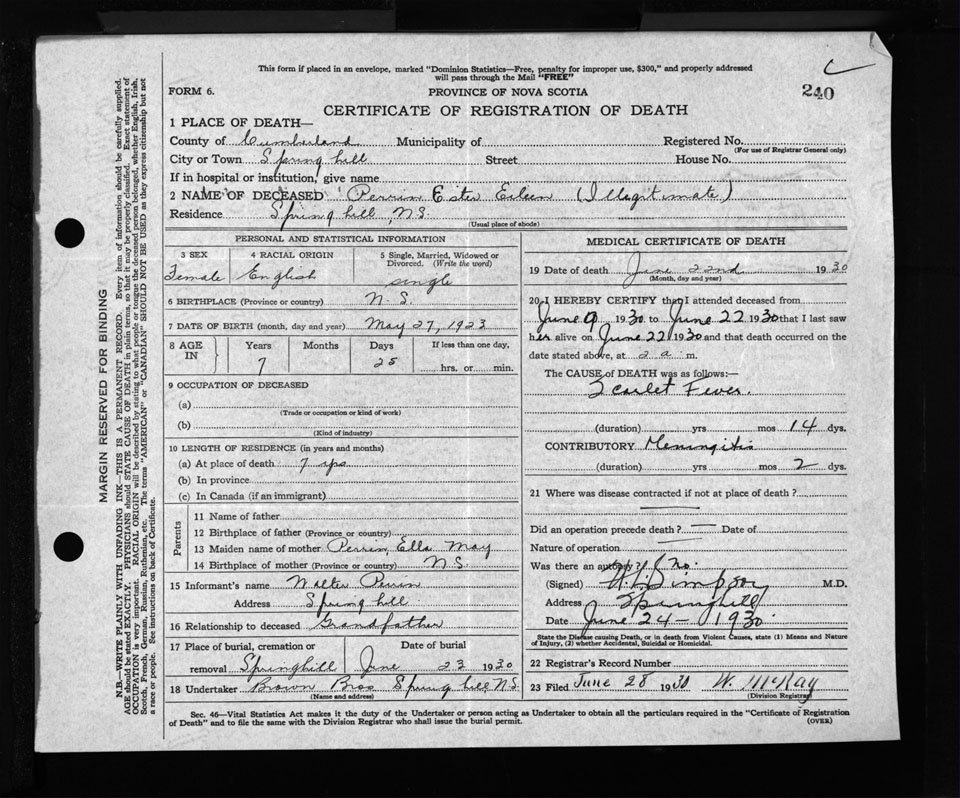 This form if placed in an envelope, marked "Dominion Statistics—Free, penalty for improper use, $300," and properly addressed
will pass through the Mail "FREE"
FORM 6.
PROVINCE OF NOVA SCOTIA
240
CERTIFICATE OF REGISTRATION OF DEATH
1 PLACE OF DEATH—
County of Cumberland Municipality of Registered No.
(For use of Registrar General only)
City or Town Spring hill Street House No.
If in hospital or institution, give name
2 NAME OF DECEASED Perrin Ester Eileen (Illegitimate)
Residence Spring hill, N.S.
(Usual place of abode)
PERSONAL AND STATISTICAL INFORMATION
3 SEX 4 RACIAL ORIGIN 5 Single, Married, Widowed or
Divorced. (Write the word)
Female English single
6 BIRTHPLACE (Province or country) N.S.
7 DATE OF BIRTH (month, day and year) May 27, 1923
8 AGE Years Months Days If less than one day,
IN 7 25 hrs. or min.
9 OCCUPATION OF DECEASED
(a)
(Trade or occupation or kind of work)
(b)
(Kind of industry)
10 LENGTH OF RESIDENCE (in years and months)
(a) At place of death 7 yrs
(b) In province
(c) In Canada (if an immigrant)
Parents
11 Name of father
12 Birthplace of father (Province or country)
13 Maiden name of mother Perrin, Ella May
14 Birthplace of mother (Province or country) N.S.
15 Informant's name Walter Perrin
Address Spring hill
16 Relationship to deceased Grandfather
17 Place of burial, cremation or Date of burial
removal Springhill June 23 1930
18 Undertaker Brown Bros Spring hill, N.S.
(Name and address)
MEDICAL CERTIFICATE OF DEATH
19 Date of death June 22nd 1930
(Month, day and year)
20 I HEREBY CERTIFY that I attended deceased from
June 9 1930 to June 22 1930 that I last saw
her alive on June 22 1930 and that death occurred on the
date stated above, at 2 a m.
The CAUSE of DEATH was as follows:—
Scarlet Fever.
(duration) yrs mos 14 dys.
CONTRIBUTORY Meningitis
(duration) yrs mos 2 dys.
21 Where was disease contracted if not at place of death?
Did an operation precede death? — Date of
Nature of operation
Was there an autopsy? No.
(Signed) M.D.
Address Springhill
Date June 24 — 1930
State the Disease causing Death, or in death from Violent Causes, state (1) Means and Nature
of Injury, (2) whether Accidental, Suicidal or Homicidal.
22 Registrar's Record Number
23 Filed June 28 1930 W. McKay
(Division Registrar)
Sec. 46—Vital Statistics Act makes it the duty of the Undertaker or person acting as Undertaker to obtain all the particulars required in the "Certificate of Registration
of Death" and to file the same with the Division Registrar who shall issue the burial permit.
(OVER)
MARGIN RESERVED FOR BINDING
N.B.—WRITE PLAINLY WITH UNFADING INK—THIS IS A PERMANENT RECORD. Every item of information should be carefully supplied.
AGE should be stated EXACTLY. PHYSICIANS should STATE CAUSE OF DEATH in plain terms, so that it may be properly classified. Exact statement of
OCCUPATION is very important. RACIAL ORIGIN will be described by stating to what people or tongue the deceased person belonged, whether English, Irish,
Scotch, French, German, Russian, Ruthenian, etc. The terms "AMERICAN" or "CANADIAN" SHOULD NOT BE USED as they express citizenship but not
a race or people. See instructions on back of Certificate.